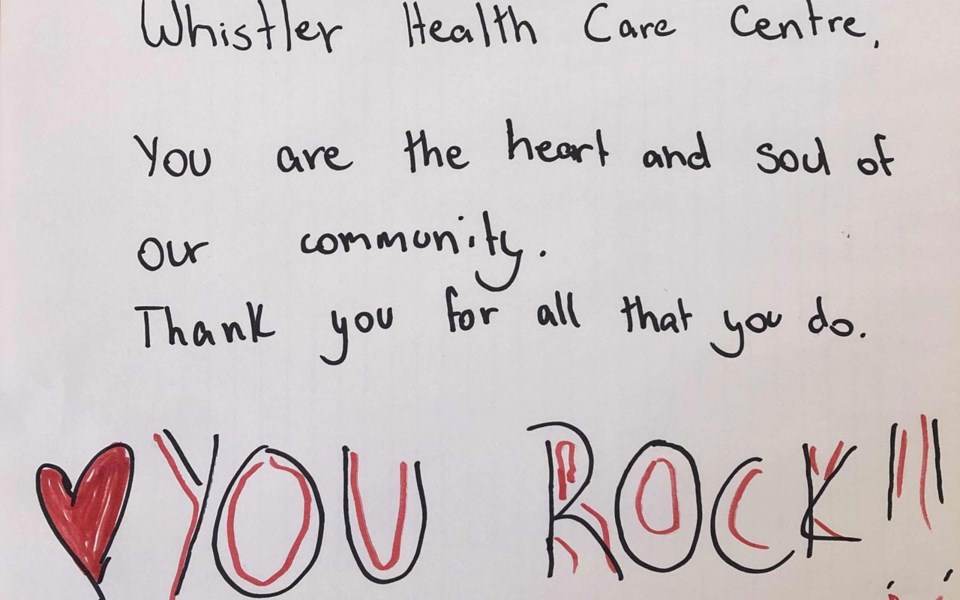 Whistler Health Care Centre,
You are the heart and soul of
our community.
Thank you for all that you do.
YOU ROCK!!!